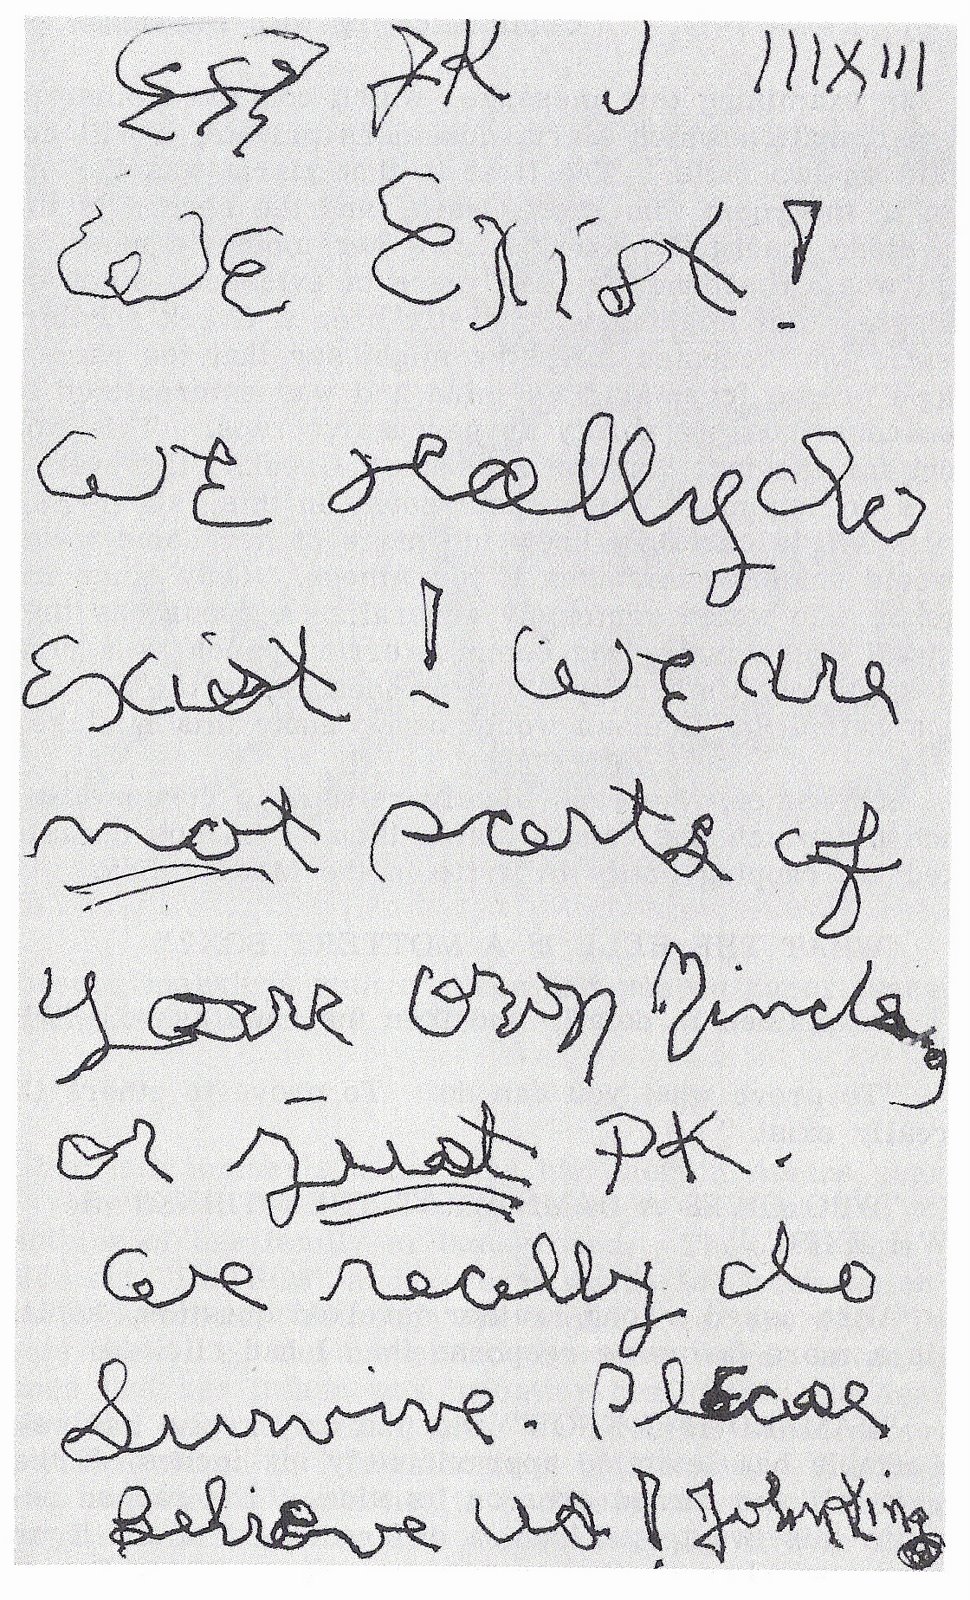 JK J IIIXIII
We Exist!
We really do
exist! We are
not parts of
youre own Minds,
or just PK.
We really do
Survive. Please
Believe us! John King